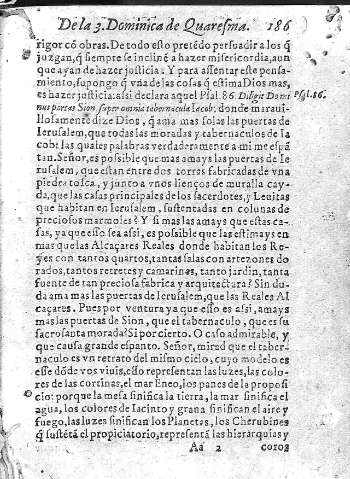 De la 3. Dominica de Quaresma. 186
rigor cõ obras. De todo esto pretẽdo persuadir a los q̃
juzgan, q̃ siempre se incline a hazer misericordia, aun
que ayan de hazer justicia. Y para assentar este pensa-
miento, supongo q̃ vna de las cosas q̃ estima Dios mas,
es hazer justicia: assi declara aquel Psal. 86. Diligit Domi Psal. 86.
nus portas Sion, super omnia tabernacula Iacob: donde maraui-
llosamente dize Dios, q̃ ama mas solas las puertas de
Ierusalem, que todas las moradas y tabernaculos de Ia
cob: las quales palabras verdaderamente a mi me espã
tan. Señor, es possible que mas amays las puertas de Ie
rusalem, que estan entre dos torres fabricadas de vna
piedra tosca, y junto a vnos lienços de muralla cay-
da, que las casas principales de los sacerdotes, y Leuitas
que habitan en Ierusalem, sustentadas en colunas de
preciosos marmoles? Y si mas las amays que estas ca-
sas, ya que esso sea assi, es possible que las estimays en
mas que las Alcaçares Reales donde habitan los Re-
yes con tantos quartos, tantas salas con artezones do
rados, tantos retretes y camarines, tanto jardin, tanta
fuente de tan preciosa fabrica y arquitectura? Sin du-
da ama mas las puertas de Ierusalem, que las Reales Al
caçares. Pues por ventura ya que esso es assi, amays
mas las puertas de Sion, que el tabernaculo, que es su
sacrosanta morada? Si por cierto. O caso admirable, y
que causa grande espanto. Señor, mirad que el taber-
naculo es vn retrato del mismo cielo, cuyo modelo es
esse dõde vos viuis, esso representan las luzes, las colo-
res de las cortinas, el mar Eneo, los panes de la proposi
cio: porque la mesa sinifica la tierra, la mar sinifica el
agua, los colores de Iacinto y grana sinifican el aire y
fuego, las luzes sinifican los Planetas, los Cherubines
q̃ sustẽtã el propiciatorio, representã las hierarquias y
Aa 2 coros